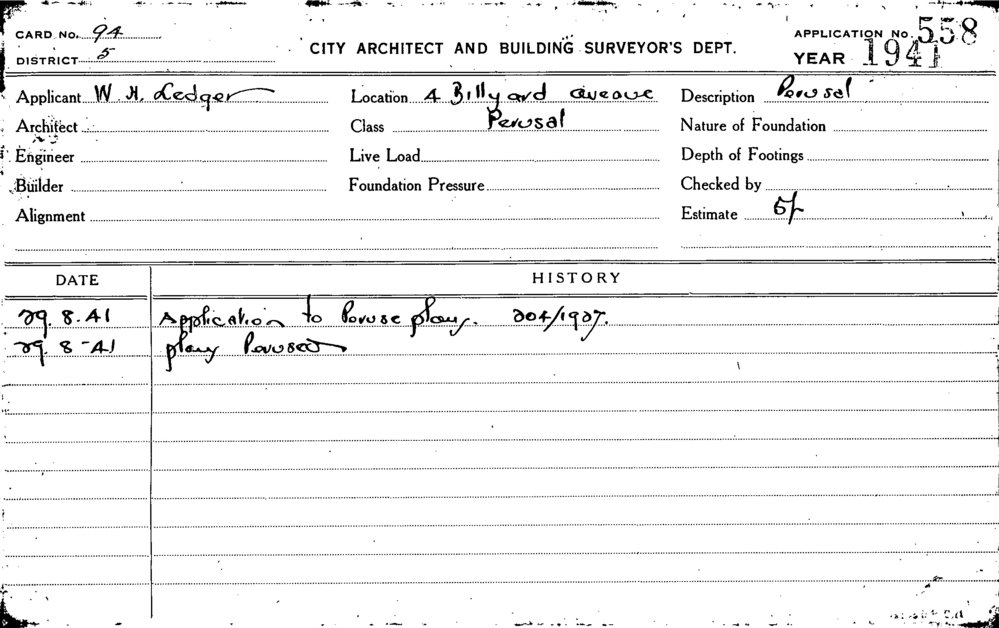 CARD No. 94
DISTRICT 5
CITY ARCHITECT AND BUILDING SURVEYOR'S DEPT.
APPLICATION No. 558
YEAR 1941
Applicant W. H. Ledger
Location 4 Billyard avenue
Description Perusal
Architect
Class Perusal
Nature of Foundation
Engineer
Live Load
Depth of Footings
Builder
Foundation Pressure
Checked by
Alignment
Estimate 5/-
DATE HISTORY
29. 8. 41 Application to Peruse plans. 204/1927.
29. 8 - 41 plans Perused